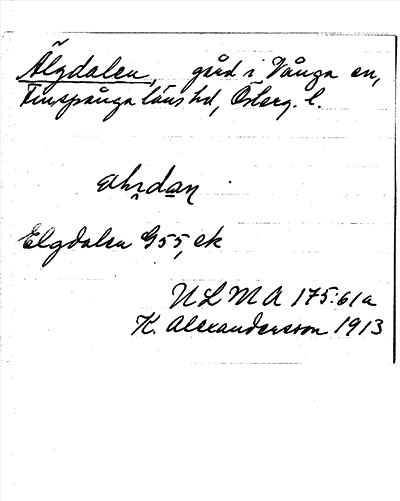 Älgdalen, gård i Vånga sn,
Finspånga läns hd, Österg. l.
Elgdalen G55, ek
ULMA 175:61a
K. Alexandersson 1913